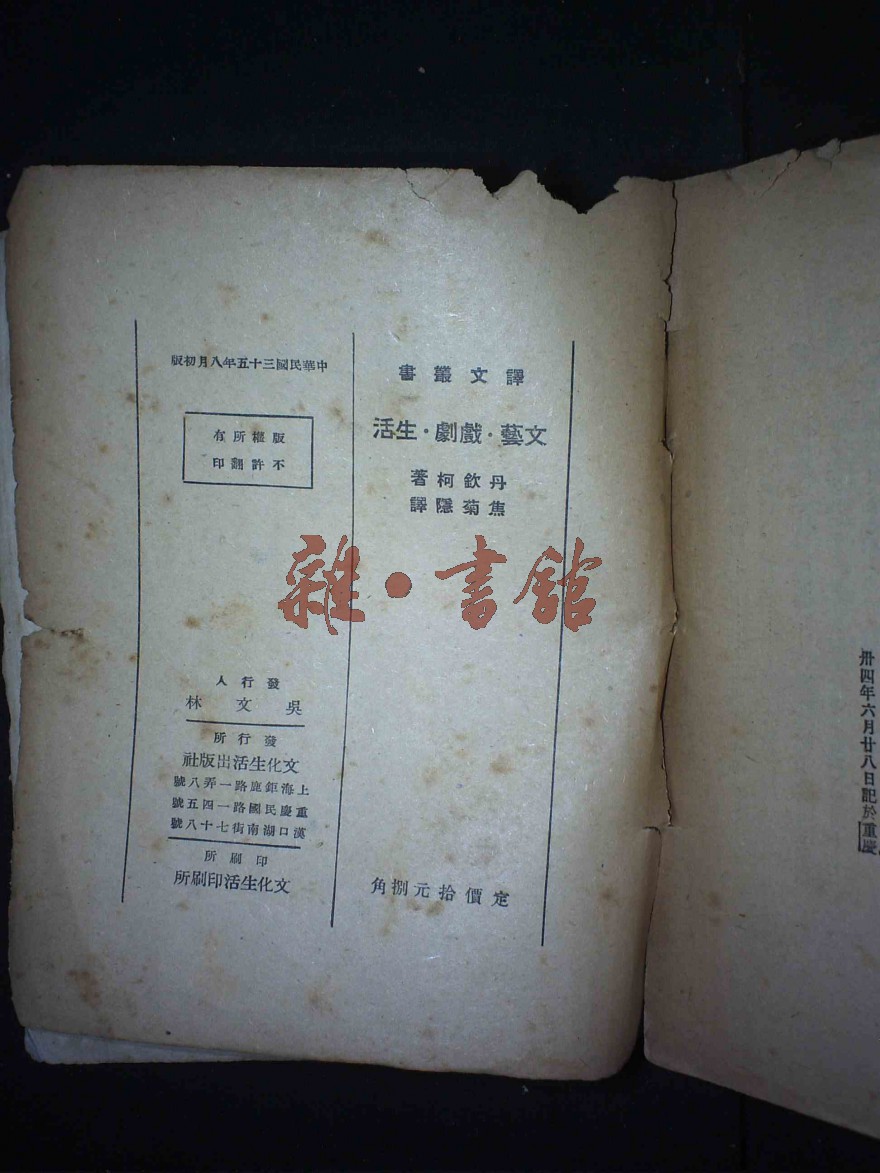 卅四年六月廿八日記於重慶
譯文叢書
文藝・戲劇・生活
丹欽柯著
焦菊隱譯
定價拾元捌角
中華民國三十五年八月初版
版權所有
不許翻印
發行人
吳文林
發行所
文化生活出版社
上海鉅鹿路一弄八號
重慶民國路一四五號
漢口湖南街七十八號
印刷所
文化生活印刷所
雜・書館